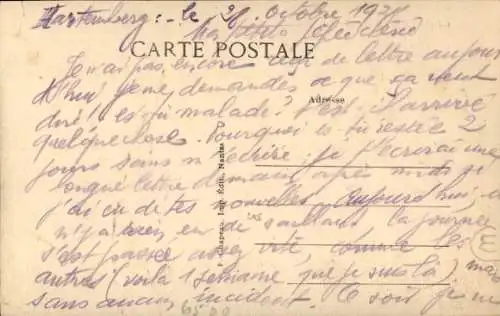 le 21 Octobre 192
Ma petite chérie
CARTE POSTALE
Je n'ai pas encore reçu de lettre aujour
d'hui je me demandes ce que ça veut
dire! es-tu malade? t'est-il arrivé
Adresse
quelque chose. Pourquoi es-tu restée 2
jours sans m'écrire. je t'écrirai une
longue lettre demain après midi si
j'ai eu de tes nouvelles. aujourd'hui, il
n'y a rien eu de saillant la journée
s'est passée assez vite, comme les
autres (voilà 1 semaine que je suis là) mais
sans aucun incident. Ce soir je ne
Chapeau, Imp. Édit., Nantes